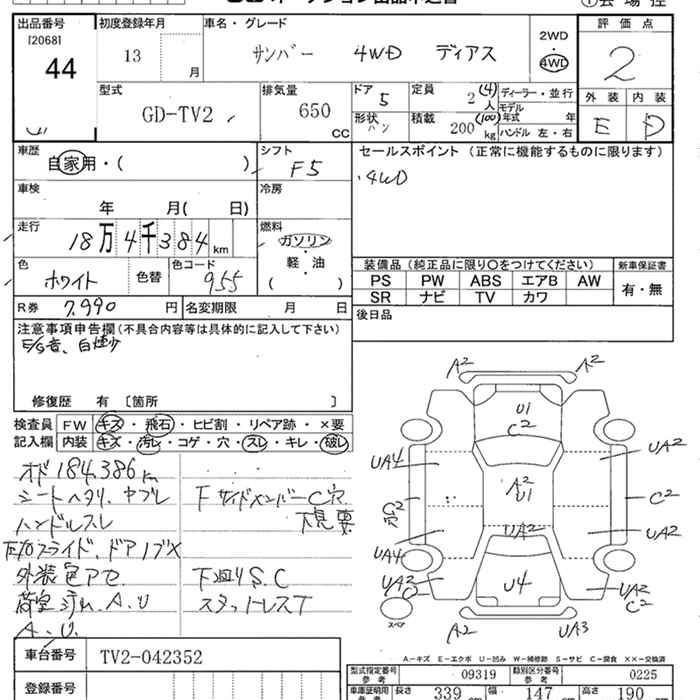 出品番号 初度登録年月 車名・グレード 評価点
[2068]
44
13 月
サンバー 4WD ディアス
2WD
4WD
2
型式 排気量 ドア 5 定員 2 (4) 人 ディーラー・並行
外装 内装
GD-TV2 650 CC
形状 バン 積載 200 (100) kg
モデル年式 年
ハンドル 左・右
E D
車歴 自家用・( )
シフト F5
セールスポイント (正常に機能するものに限ります)
・4WD
車検 年 月( 日)
冷房
走行 18万4千384km
燃料 ガソリン・軽・油 ( )
色 ホワイト 色替 色コード 955
装備品 (純正品に限り○をつけてください) 新車保証書
PS PW ABS エアB AW 有・無
SR ナビ TV カワ
R券 7,990 円 名変期限 月 日
後日品
注意事項申告欄(不具合内容等は具体的に記入して下さい)
E/G音、白煙少
修復歴 有 〔箇所 〕
検査員 FW キズ・飛石・ヒビ割・リペア跡・×要
記入欄 内装 キズ・汚レ・コゲ・穴・スレ・キレ・破レ
オド184,386km
シートヘタリ、ヤブレ
ハンドルスレ
スライド、ドアノブX
外装色アセ
荷室汚れ、A.U
A.U.
FサイドメンバーC穴
下見要
下回りS.C
スタットレスT
A2 A2
U1
C2
UA4 UA2
A2
U1
C2 穴 C2
UA2 UA2
UA4
UA2 C2 U4 UA2
C2
スペア
A2 UA3
A-キズ E-エクボ U-凹み W-補修跡 S-サビ C-腐食 XX-交換済
車台番号 TV2-042352
型式指定番号 参考 09319 類別区分番号 参考 0225
登録番号
車庫証明用 参考 長さ 339 cm 幅 147 cm 高さ 190 cm